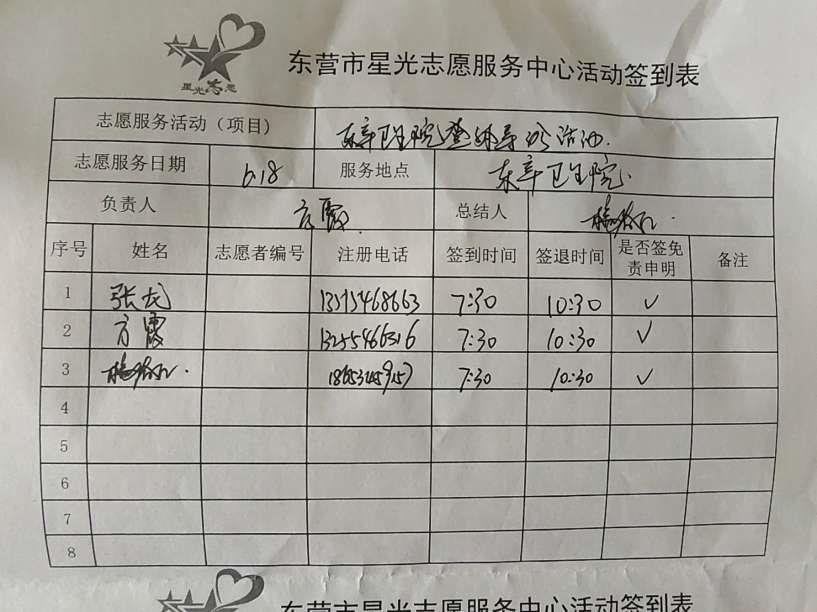 星光志愿
东营市星光志愿服务中心活动签到表
志愿服务活动（项目） 东辛卫生院 活动.
志愿服务日期 6.18 服务地点 东辛卫生院.
负责人 方霞 总结人
序号 姓名 志愿者编号 注册电话 签到时间 签退时间 是否签免责申明 备注
1 张龙 7:30 10:30 ✓
2 方霞 13255466316 7:30 10:30 ✓
3 7:30 10:30 ✓
4
5
6
7
8
东营市星光志愿服务中心活动签到表